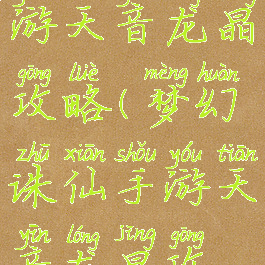 游天音龙晶
gōng lüè mèng huàn
攻略(梦幻
zhū xiān shǒu yóu tiān
诛仙手游天
yīn lóng jīng gōng
音龙晶攻